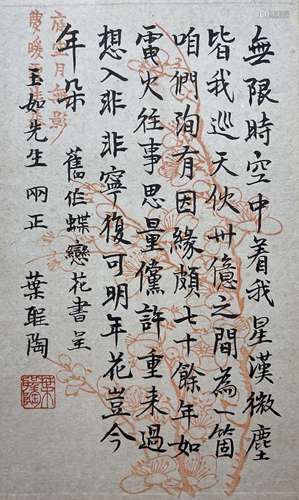 無限時空中着我星漢微塵
皆我巡天伙卅億之間為一箇
咱們洵有因緣頗七十餘年如
電火往事思量儻許重来過
想入非非寧復可明年花豈今
年朵 舊作蝶戀花書呈
玉如先生兩正 葉聖陶
葉聖陶